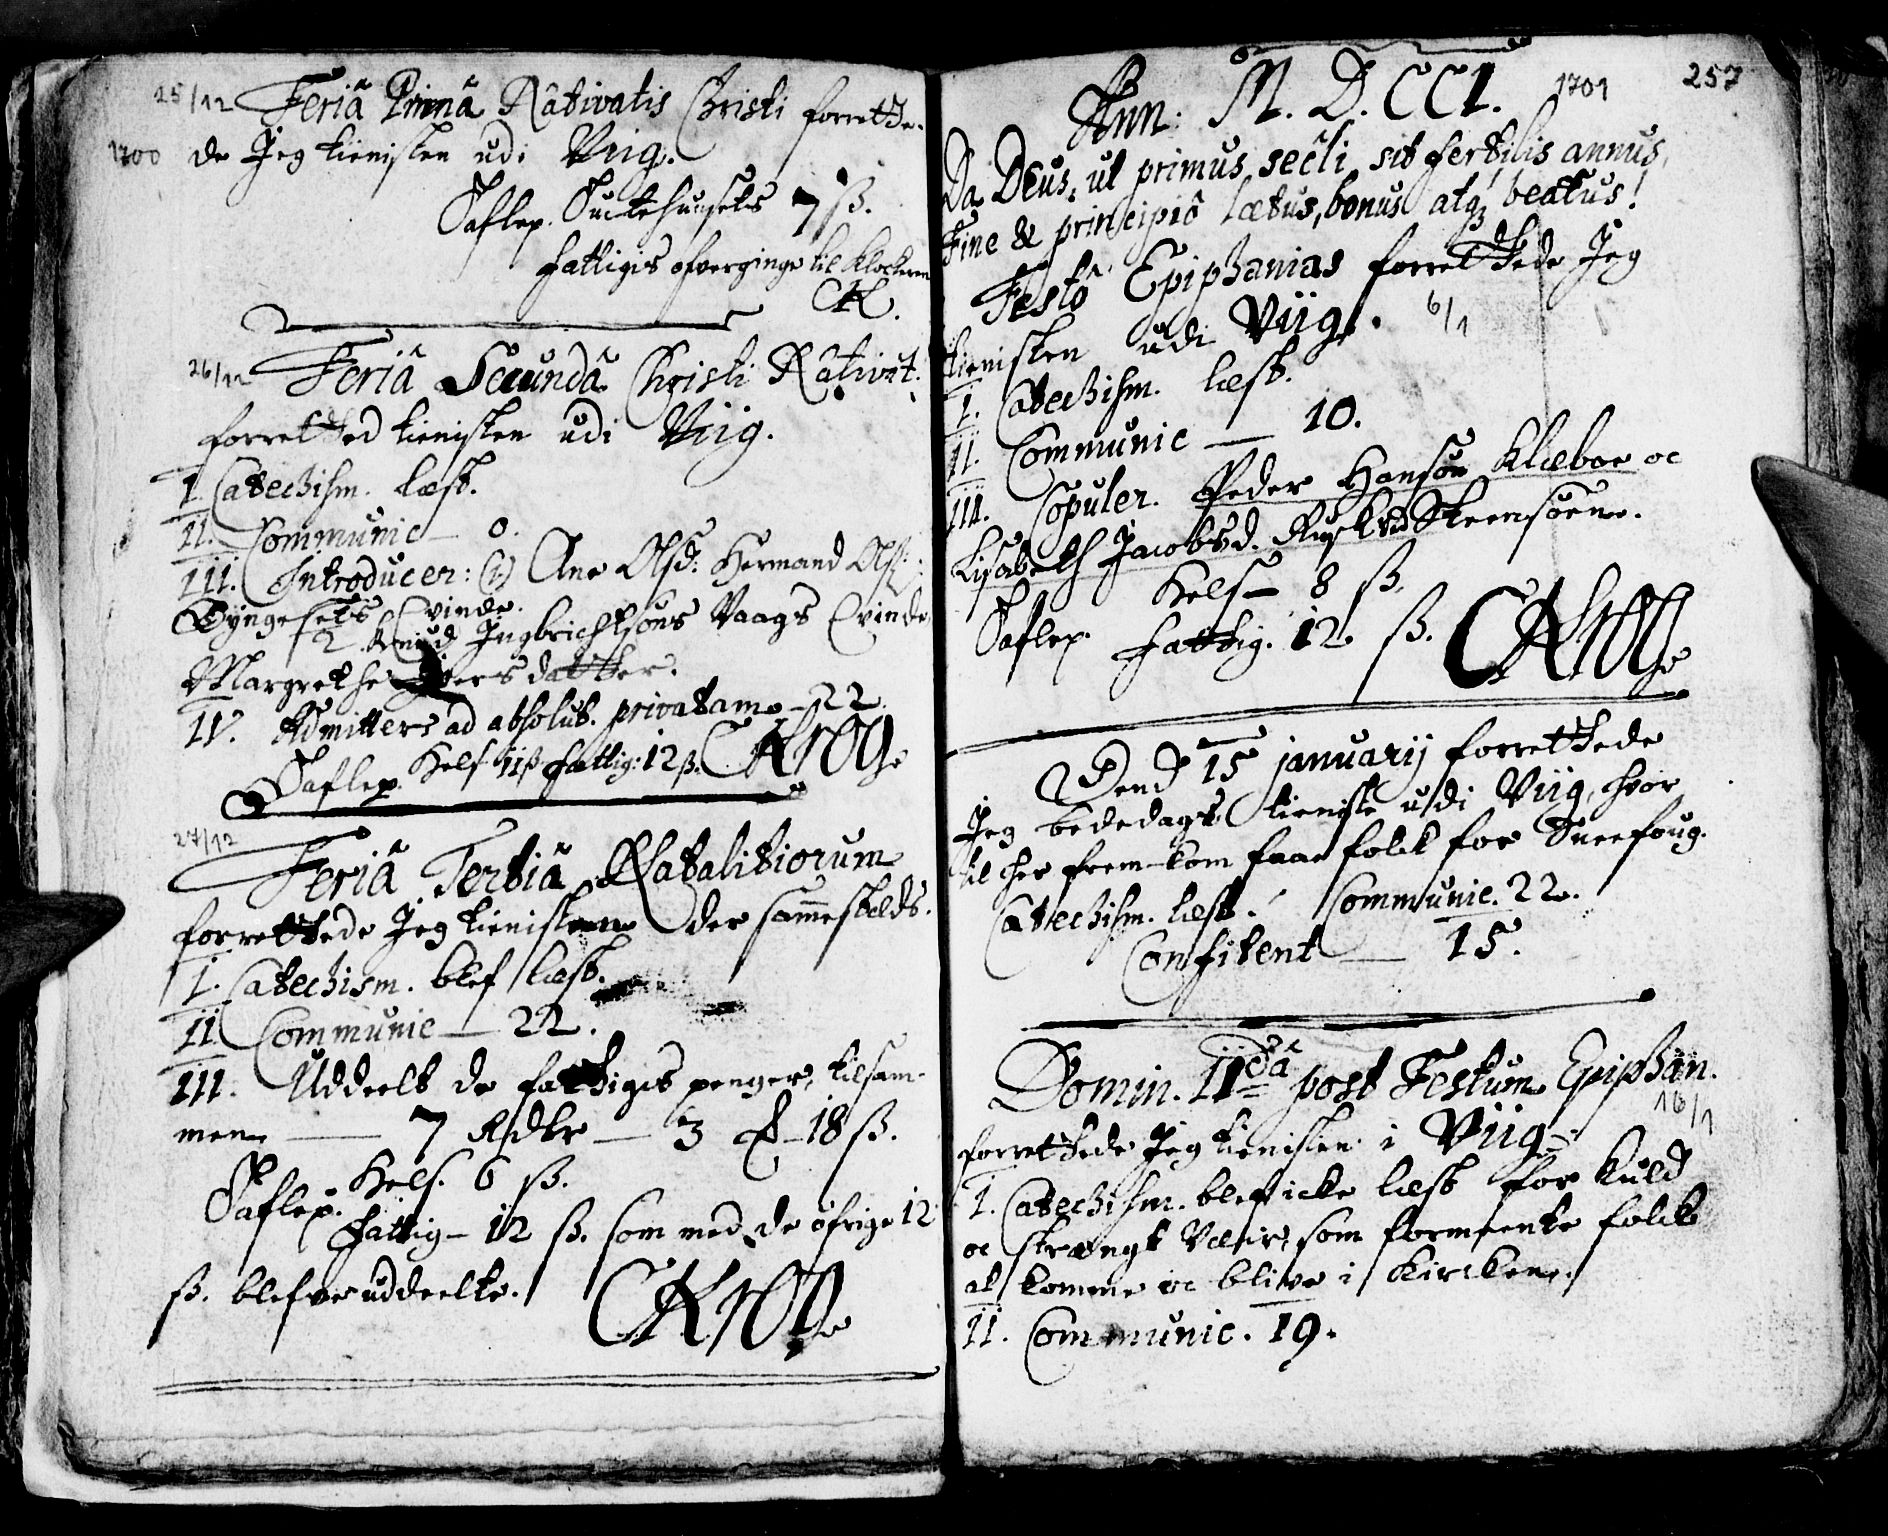 25/12 Feriâ Primâ Nativatis Christi forrette-
1700 de Jeg tienisten udi Viig.
Taflep. Suckehuusets 7 ß.
fattigis ofverginge til Klockeren
CK.
26/12 Feriâ Secundâ Christi Nativit.
forretted tienisten udi Viig.
I. Catechism. læst.
II. Communic — 0.
III. Introducer: (1) Ane Olsd: Hermand Ols:
Gyngesets Qvinde.
2 Knud Ingbrichtsøns Vaags Qvinde
Margrethe Iversdatter.
IV. Admitters ad absolut. privatam — 22.
Taflep. Kels 11 ß fattig: 12 ß. CKrog
27/12
Feriâ Tertiâ Natalitiorum
forrettede Jeg tienisten der sammesteds.
I. Catechism. blef læst.
II Communic — 22.
III. Uddeelt de fattigis penger, tilsam-
men — 7 Rdlr — 3 — 18 ß.
Kels. 6 ß.
Taflep.
fattig — 12 ß. som med de øfrige 12
ß. blefve uddeelte. CKrog
257
Ann: M. D. CCI. 1701
Da Deus, ut primus secli, sit fertilis annus,
Fine & principiô lætus, bonus atq; beatus!
Festô Epiphanias forrettede Jeg
tienisten udi Viig. 6/1
I. Catechism. læst.
II. Communic — 10.
III. Copuler. Peder Hansøn Klæboe oc
Lisabeth Jacobsd. Steensøen.
Kels — 8 ß.
Taflep. fattig. 12 ß. CKrog
Dend 15 januarij forrettede
Jeg bededags tieniste udi Viig, hvor
til her frem-kom faae folck for Sneefoug.
Catechism. læst. Communic. 22.
Confitent — 15.
Domin. IIdâ post Festum Epiphan.
16/1
forrettede Jeg tienisten i Viig.
I. Catechism. blef icke læst for kuld
oc strængt Væir, som formeente folck
at komme oc blive i Kircken.
II. Communic. 19.